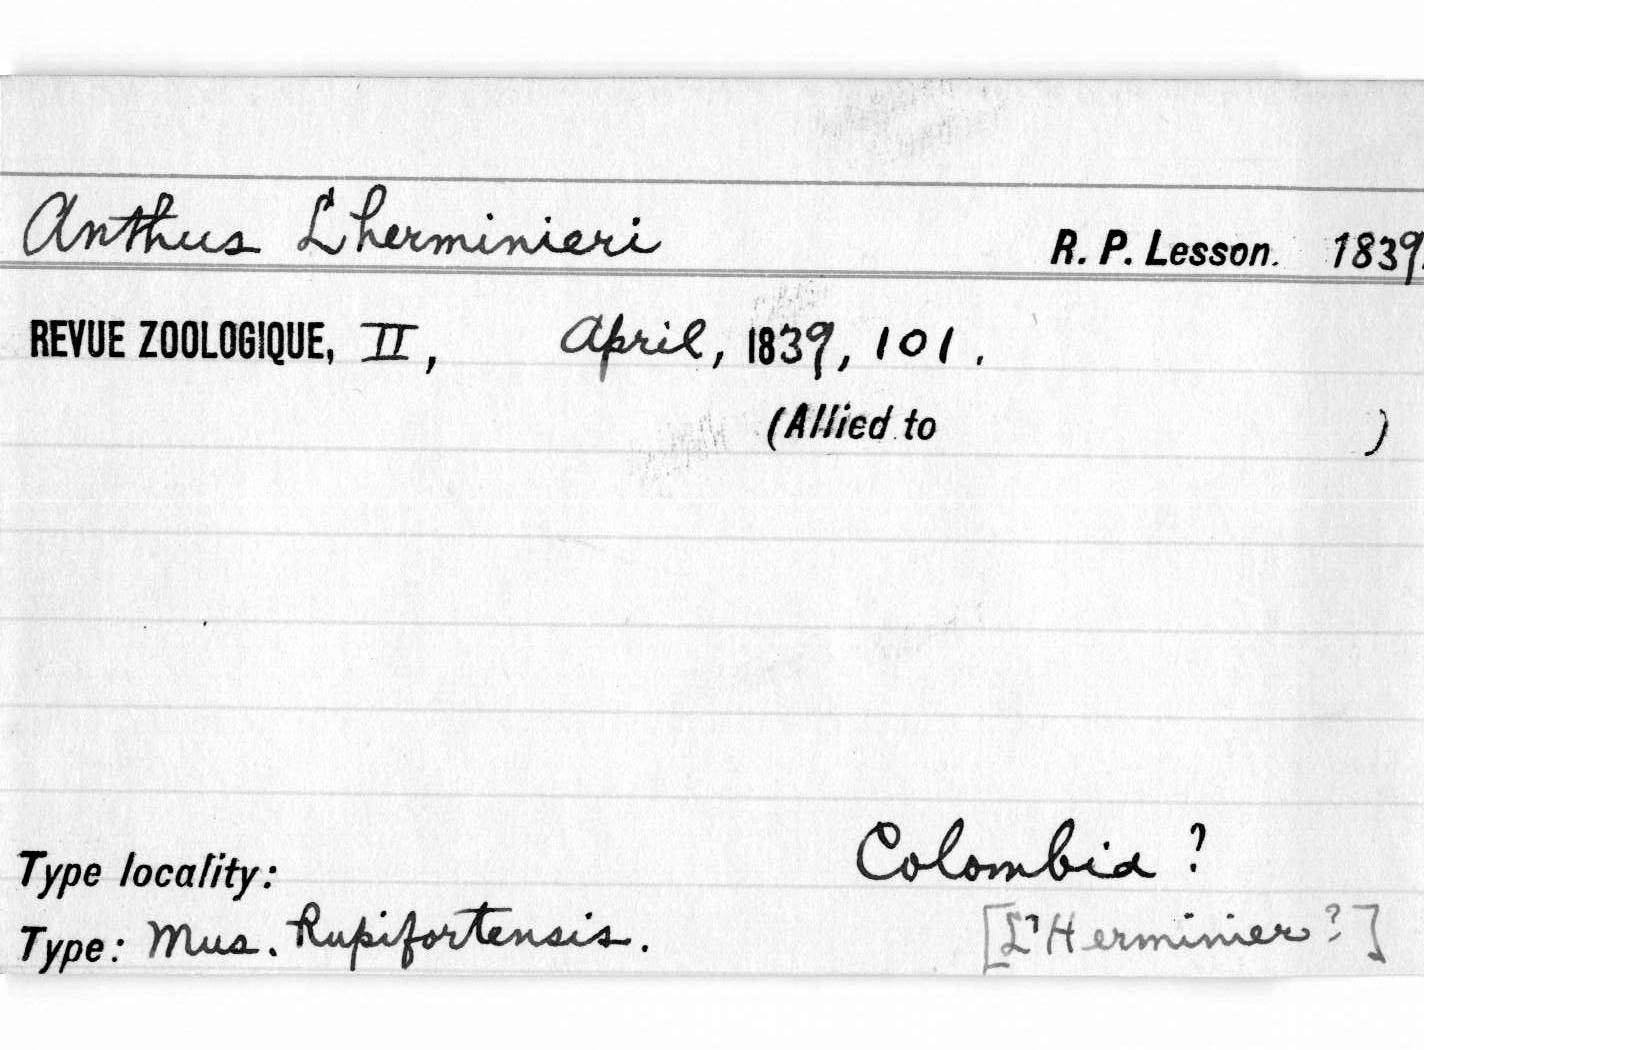 Anthus L'herminieri R. P. Lesson. 1839.
REVUE ZOOLOGIQUE, II, April, 1839, 101.
(Allied to )
Type locality: Colombia ?
Type: Mus. Rupifortensis. [L'Herminier?]